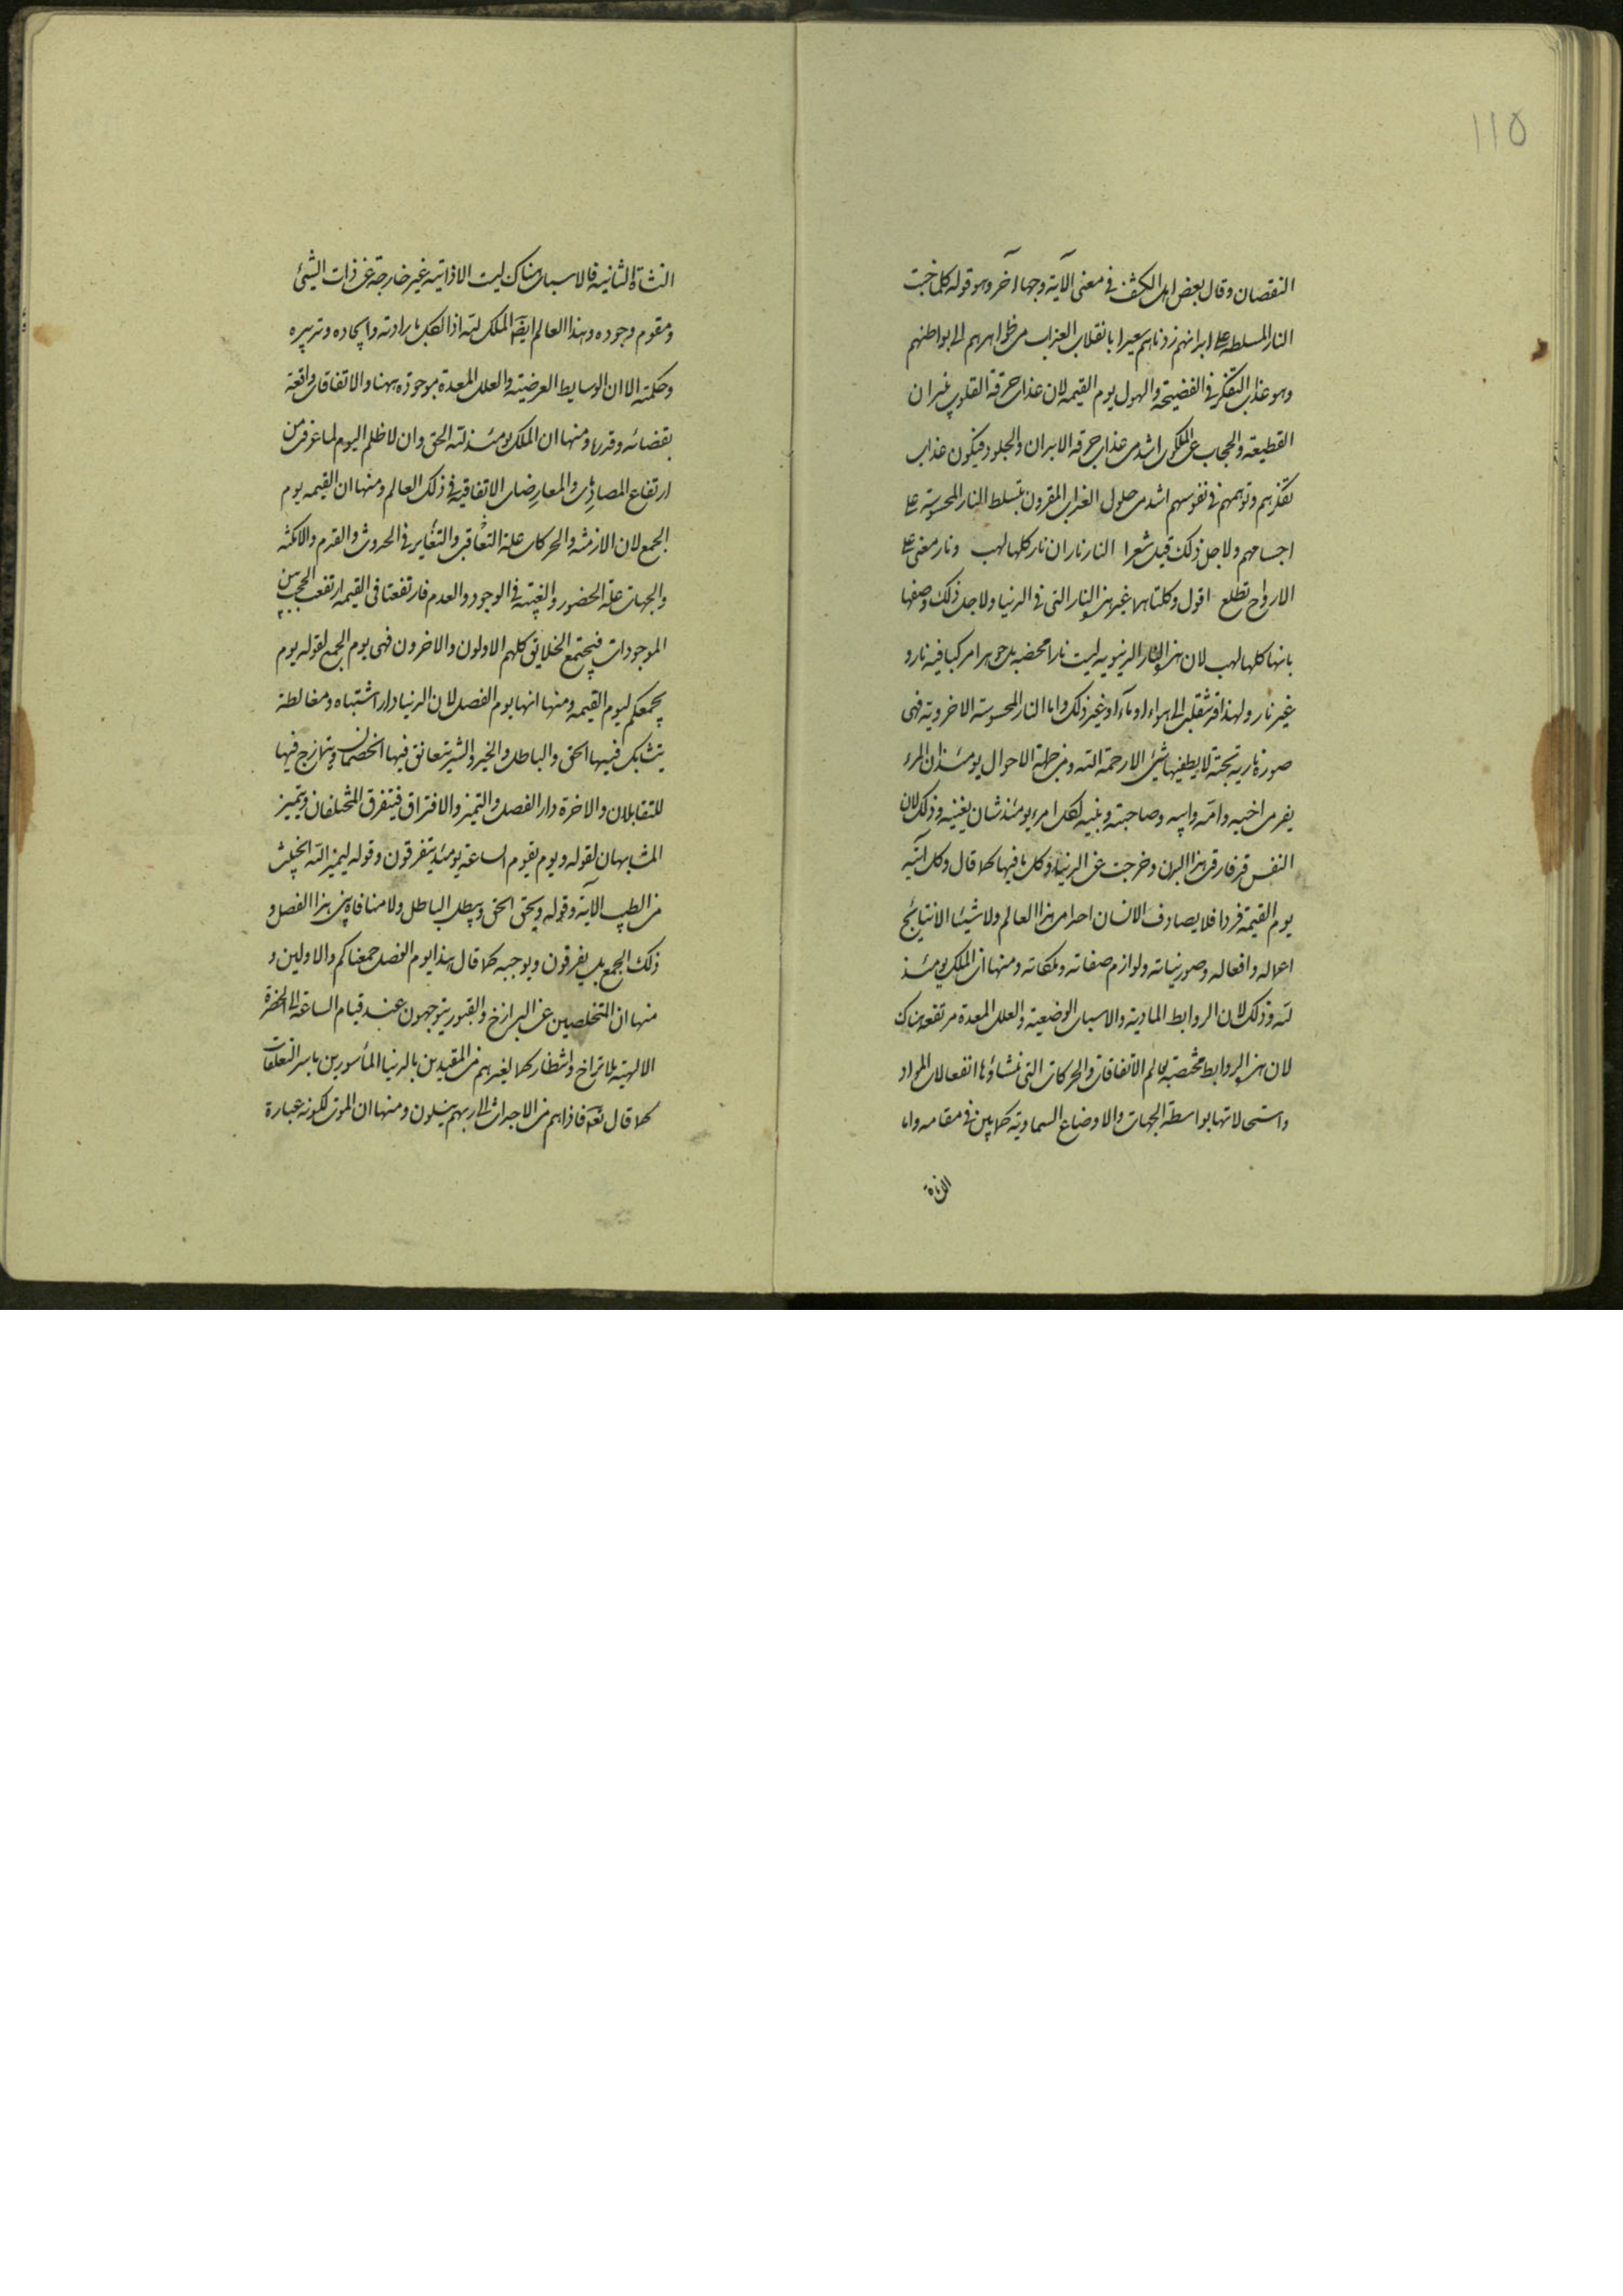 ١١٥
النقصان وقال بعض اهل الكشف في معنى الآية وجها آخر وهو قوله كلما خبت
النار المسلطة على ابدانهم زدناهم سعيرا بانقلاب العذاب من ظواهرهم الى بواطنهم
وهو عذاب التفكر في الفضيحة والهول يوم القيمة لان عذاب حرقة القلوب بنيران
القطيعة والحجاب عن الملكوت اشد من عذاب حرقة الابدان والجلود فيكون عذاب
تفكرهم وتوهمهم في نفوسهم اشد من حلول العذاب المقرون بتسلط النار المحسوسة على
اجسامهم ولاجل ذلك قيل شعرا النار ناران نار كلها لهب ونار معنى على
الارواح تطلع اقول وكلتاهما غير هذه النار التي في الدنيا ولاجل ذلك وصفها
بانها كلها لهب لان هذه النار الدنيوية ليست نارا محضة بل جوهرا مركبا فيه نار و
غير نار ولهذا قد تنقلب الى هواء او ماء او غير ذلك واما النار المحسوسة الاخروية فهي
صورة نارية بحتة لا يطفيها شيئ الا رحمة الله ومن جملة الاحوال يومئذ ان المرء
يفر من اخيه وامه وابيه وصاحبته وبنيه لكل امرء يومئذ شان يغنيه وذلك لان
النفس قد فارقت هذا البدن وخرجت عن الدنيا وكل ما فيها كما قال وكل آتيه
يوم القيمة فردا فلا يصادف الانسان احدا من هذا العالم ولا شيئا الا نتايج
اعماله وافعاله وصور نياته ولوازم صفاته وملكاته ومنها ان الملك يومئذ
لله وذلك لان الروابط المادية والاسباب الوضعية والعلل المعدة مرتفعة هناك
لان هذه الروابط مختصة بعالم الاتفاقات والحركات التي منشاؤها انفعالات المواد
واستحالاتها بواسطة الجهات والاوضاع السماوية كما بين في مقامه واما
النشاة
النشاة الثانية فالاسباب هناك ليست الا ذاتية غير خارجة عن ذات الشيئ
ومقوم وجوده وهذا العالم ايضا الملك لله اذ الكل بارادته وايجاده وتدبيره
وحكمته الا ان الوسايط العرضية والعلل المعدة موجودة ههنا والاتفاقات واقعة
بقضائه وقدره ومنها ان الملك يومئذ لله الحق وان لا ظلم اليوم لما عرفت من
ارتفاع المصادمات والمعارضات الاتفاقية في ذلك العالم ومنها ان القيمة يوم
الجمع لان الازمنة والحركات علة التعاقب والتغاير في الحدوث والقدم والامكنة
والجهات علة الحضور والغيبة في الوجود والعدم فارتفعتا في القيمة ارتفعت الحجب بين
الموجودات فيجتمع الخلايق كلهم الاولون والاخرون فهى يوم الجمع لقوله يوم
يجمعكم ليوم القيمة ومنها انها يوم الفصل لان الدنيا دار اشتباه ومغالطة
يتشابك فيها الحق والباطل والخير والشر يتعانق فيها الخصمان ويتمازج فيها
المتقابلان والاخرة دار الفصل والتميز والافتراق فيتفرق المختلفان ويتميز
المتشابهان لقوله ويوم يقوم الساعة يومئذ يتفرقون وقوله ليميز الله الخبيث
من الطيب الآية وقوله ويحق الحق ويبطل الباطل ولا منافاة بين هذا الفصل و
ذلك الجمع بل يفرقون ويوجبه كما قال هذا يوم الفصل جمعناكم والاولين و
منها ان المتخلصين عن البرازخ والقبور يتوجهون عند قيام الساعة الى الحضرة
الالهية بلا تراخ وانتظار كما لغيرهم من المقيدين بالدنيا المأسورين باسر التعلقات
كما قال تعم فاذا هم من الاجداث الى ربهم ينسلون ومنها ان الموت لكونه عبارة